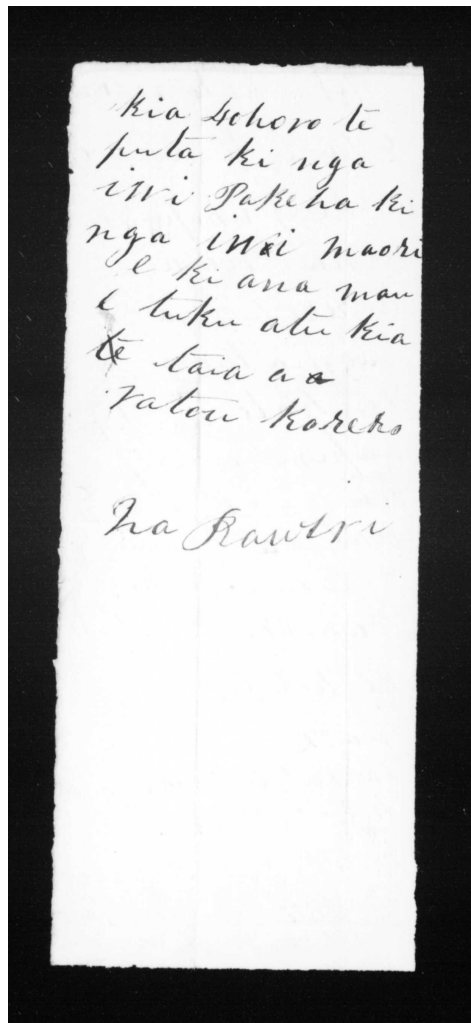 Kia hohoro te
puta ki nga
iwi Pakeha ki
nga iwi maori
e ki ana mau
e tuku atu kia
te taia a a
ratou korero
Na Rawiri